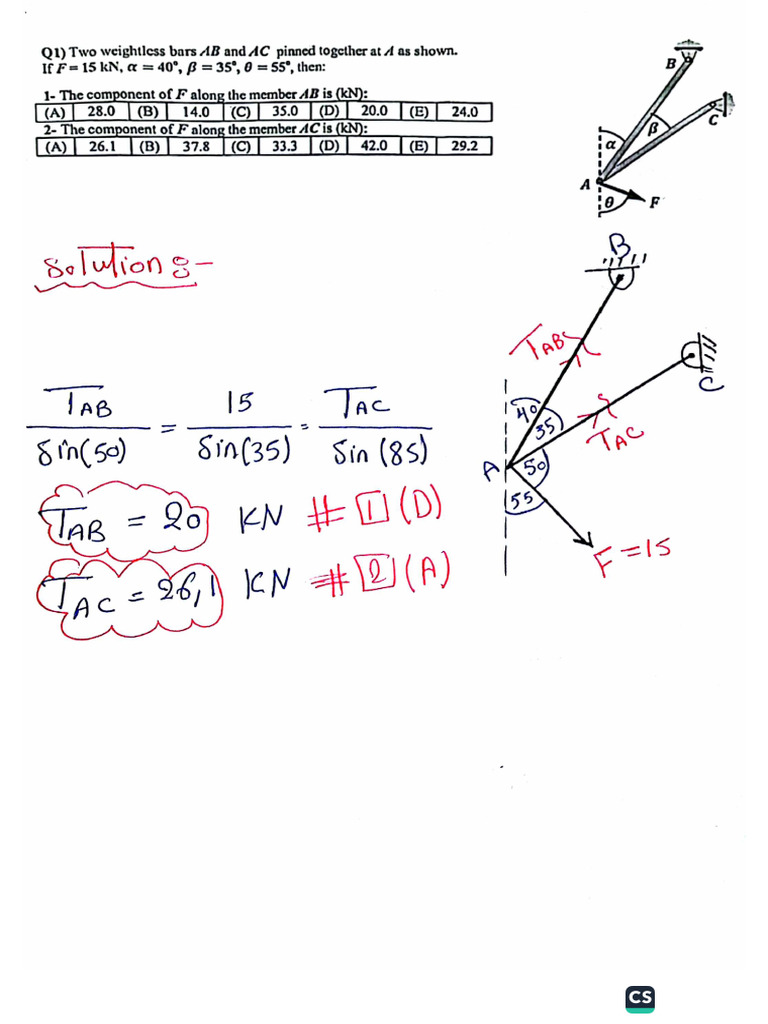 Q1) Two weightless bars AB and AC pinned together at A as shown.
If F = 15 kN, α = 40°, β = 35°, θ = 55°, then:
1- The component of F along the member AB is (kN):
(A) 28.0 (B) 14.0 (C) 35.0 (D) 20.0 (E) 24.0
2- The component of F along the member AC is (kN):
(A) 26.1 (B) 37.8 (C) 33.3 (D) 42.0 (E) 29.2
B
C
β
α
A
θ F
Solution :-
B
TAB
C
40
35
TAC
A
50
55
F = 15
TAB / Sin(50) = 15 / Sin(35) = TAC / Sin (85)
TAB = 20 KN # 1 (D)
TAC = 26,1 KN # 2 (A)
CS